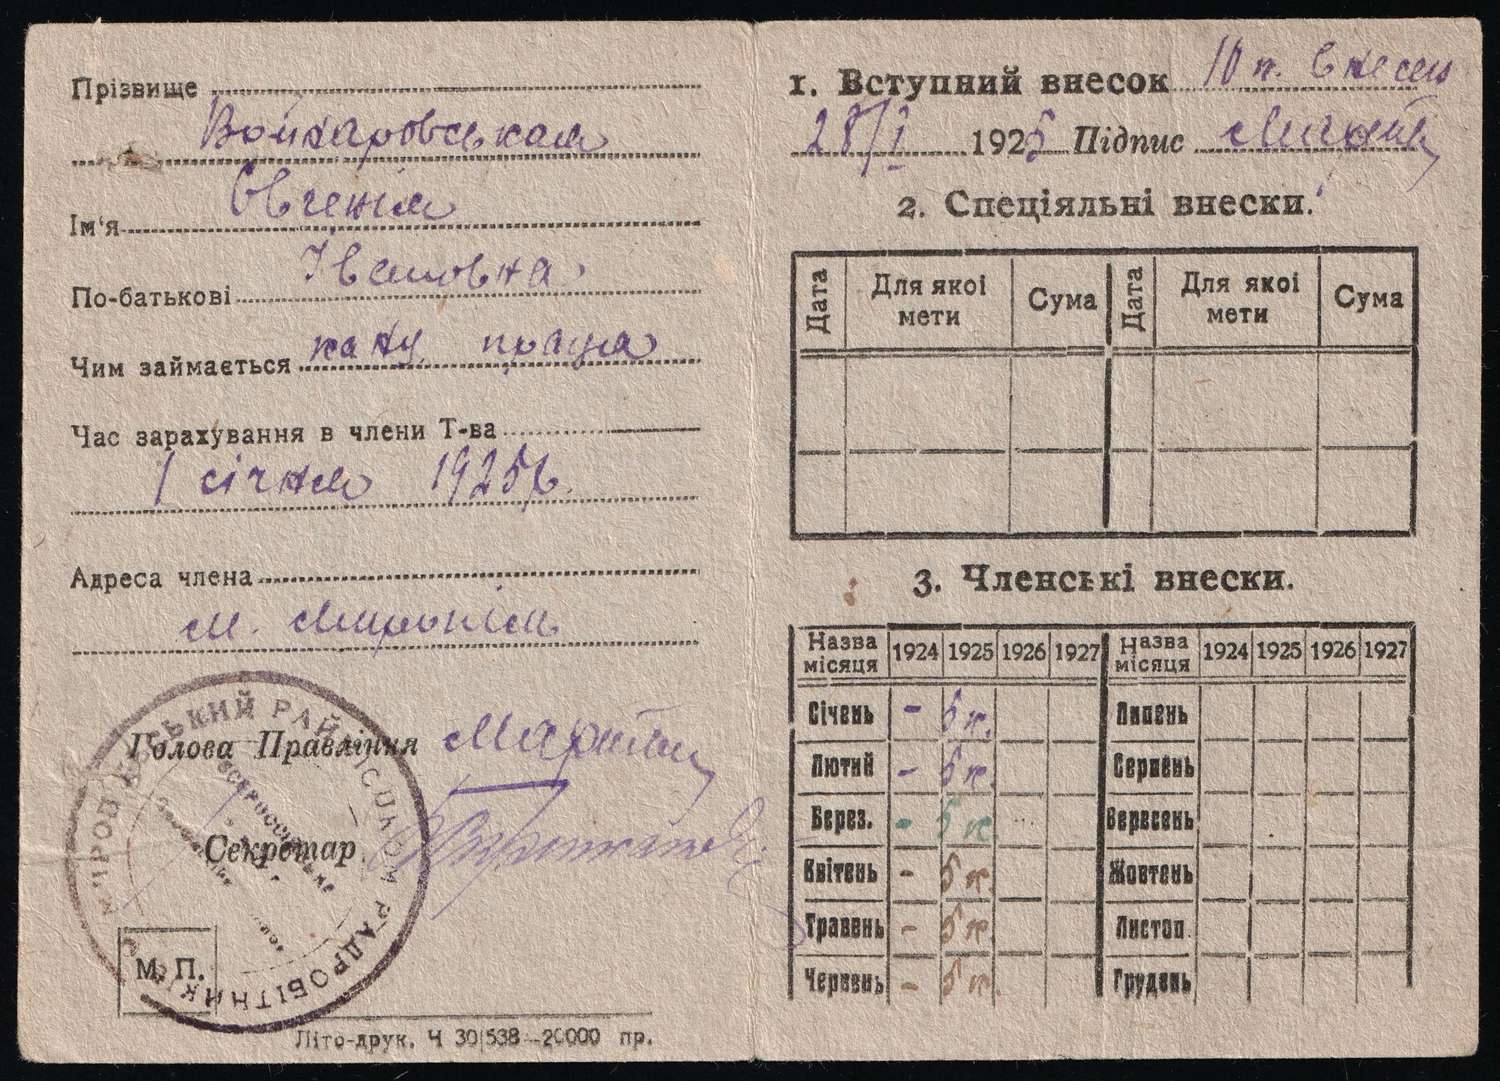 Прізвище
Войнаровськая
Ім'я Євгенія
По-батькові Івановна
Чим займається канц. праця
Час зарахування в члени Т-ва
1 січня 1925 р.
Адреса члена
м. Миропіль
Голова Правління
Секретар
М. П.
РАДРОБІТНИКІВ
Літо-друк. Ч 30538—20000 пр.
1. Вступний внесок 10 к. внесен
28/I 1925 Підпис
2. Спеціяльні внески.
Дата Для якої мети Сума Дата Для якої мети Сума
3. Членські внески.
Назва місяця 1924 1925 1926 1927 Назва місяця 1924 1925 1926 1927
Січень - 5 к. Липень
Лютий - 5 к. Серпень
Берез. - 5 к. Вересень
Квітень - 5 к. Жовтень
Травень - 5 к Листоп.
Червень - 5 к. Грудень